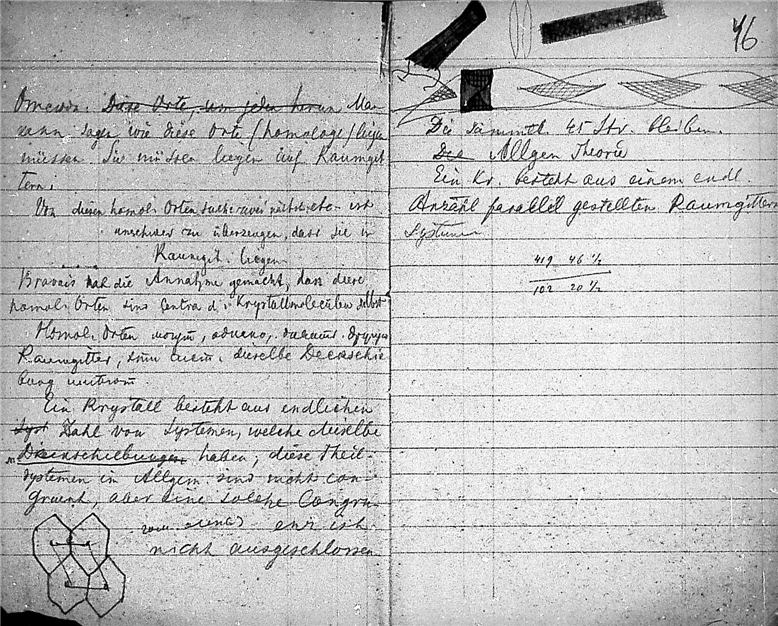 Diese Orte, Man
kann sagen wie diese Orte (homologe) liegen
müssen. Sie müssen liegen auf Raumgit
tern.
Von diesen homol. Orten
zu überzeugen, dass sie in
Raumgit. liegen.
Bravais hat die Annahme gemacht, dass diese
homol. Orten sins Centra d. Krystallmolecülen selbst
Homol. Orten
Raumgitter, dieselbe Deckschie
bung
Ein Krystall besteht aus endlichen
Syst Zahl von Systemen, welche dieselbe
Deckschiebungen haben; diese Theil-
systemen in Allgem. sins nicht con-
gruent, aber eine solche Congru-
enz ist
nicht ausgeschlossen
46
Die sämmtl. 45 Str. bleiben.
Die Allgem Theorie
Ein Kr. besteht aus einem endl.
Anzahl parallel gestellten Raumgittern
Systemen
419 46 1/2
102 20 1/2